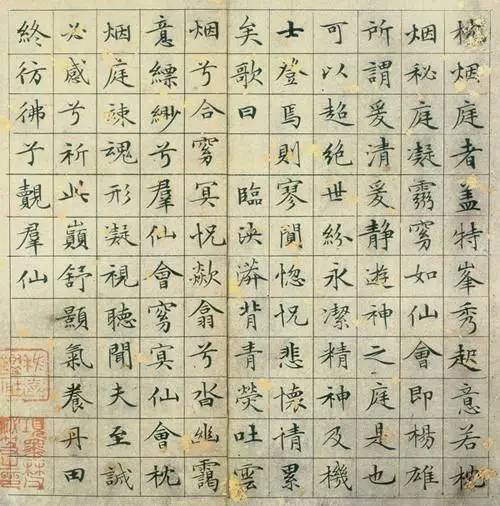 枕烟庭者盖特峯秀起意若枕
烟秘庭凝靈窅如仙會即楊雄
所謂爰清爰靜遊神之庭是也
可以超絕世紛永潔精神及機
士登焉則寥閴惚怳悲懷情累
矣歌曰 臨泱漭背青熒吐雲
烟兮合窅冥怳欻翕兮沓幽靄
意縹緲兮羣仙會窅冥仙會枕
烟庭竦魂形凝視聽聞夫至誠
必感兮祈此巔舒顥氣養丹田
終彷彿兮覿羣仙